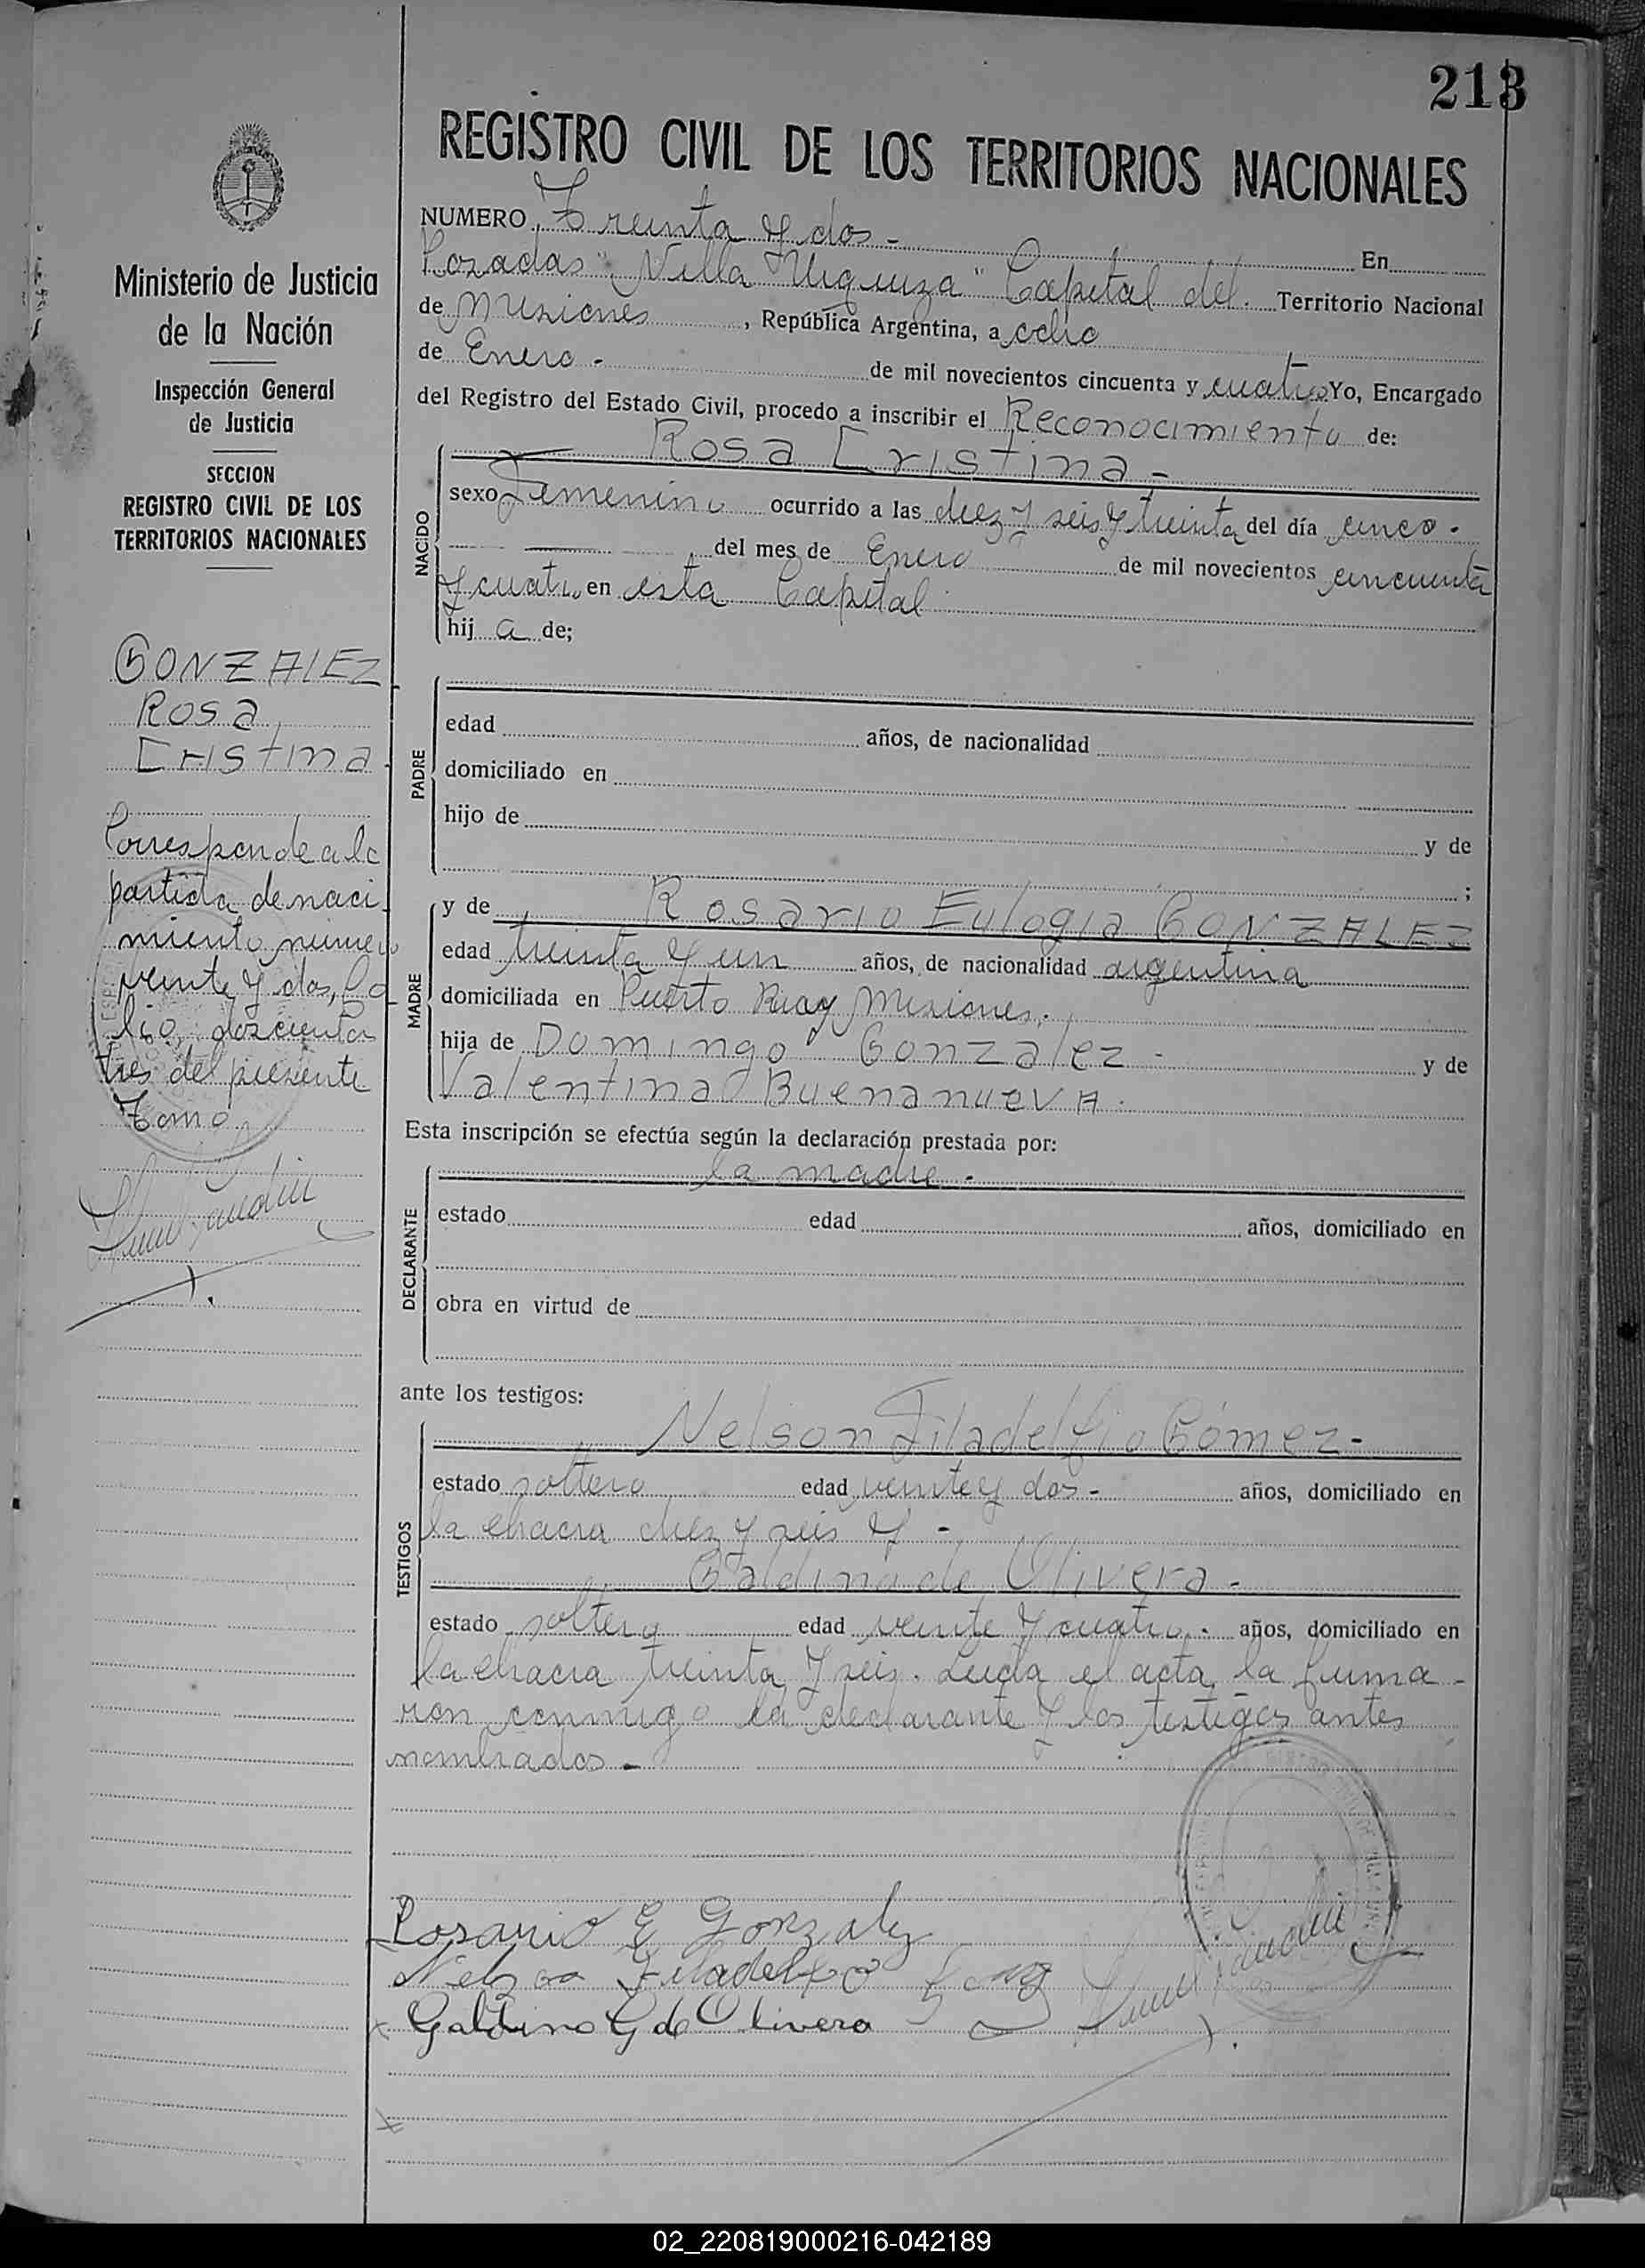 213
REGISTRO CIVIL DE LOS TERRITORIOS NACIONALES
Ministerio de Justicia
de la Nación
Inspección General
de Justicia
SECCION
REGISTRO CIVIL DE LOS
TERRITORIOS NACIONALES
GONZALEZ
Rosa
Cristina.
Corresponde a la
partida de naci
miento número
veinte y dos, fo
lio, doscientos
tres del presente
Tomo.
NUMERO Treinta y dos - En
Posadas "Villa Urquiza" Capital del. Territorio Nacional
de Misiones, República Argentina, a ocho
de Enero - de mil novecientos cincuenta y cuatro Yo, Encargado
del Registro del Estado Civil, procedo a inscribir el Reconocimiento de:
Rosa Cristina -
NACIDO
sexo Femenino ocurrido a las diez y seis y treinta del día cinco -
del mes de Enero de mil novecientos cincuenta
y cuatro en esta Capital
hij a de;
PADRE
edad años, de nacionalidad
domiciliado en
hijo de y de
;
MADRE
y de Rosario Eulogia GONZALEZ
edad treinta y un años, de nacionalidad argentina
domiciliada en Puerto Rico, Misiones.
hija de Domingo Gonzalez - y de
Valentina Buenanueva.
Esta inscripción se efectúa según la declaración prestada por:
la madre -
DECLARANTE
estado edad años, domiciliado en
obra en virtud de
ante los testigos:
Nelson Filadelfio Gómez -
TESTIGOS
estado soltero edad veinte y dos - años, domiciliado en
la chacra diez y seis y -
Galdino de Olivera -
estado soltero edad veinte y cuatro - años, domiciliado en
la chacra treinta y seis. Leida el acta, la firma -
ron conmigo la declarante y los testigos antes
nombrados -
Rosario E Gonzalez
Nelson Filadelfio Gomez
Galdino G de Olivera
02_220819000216-042189